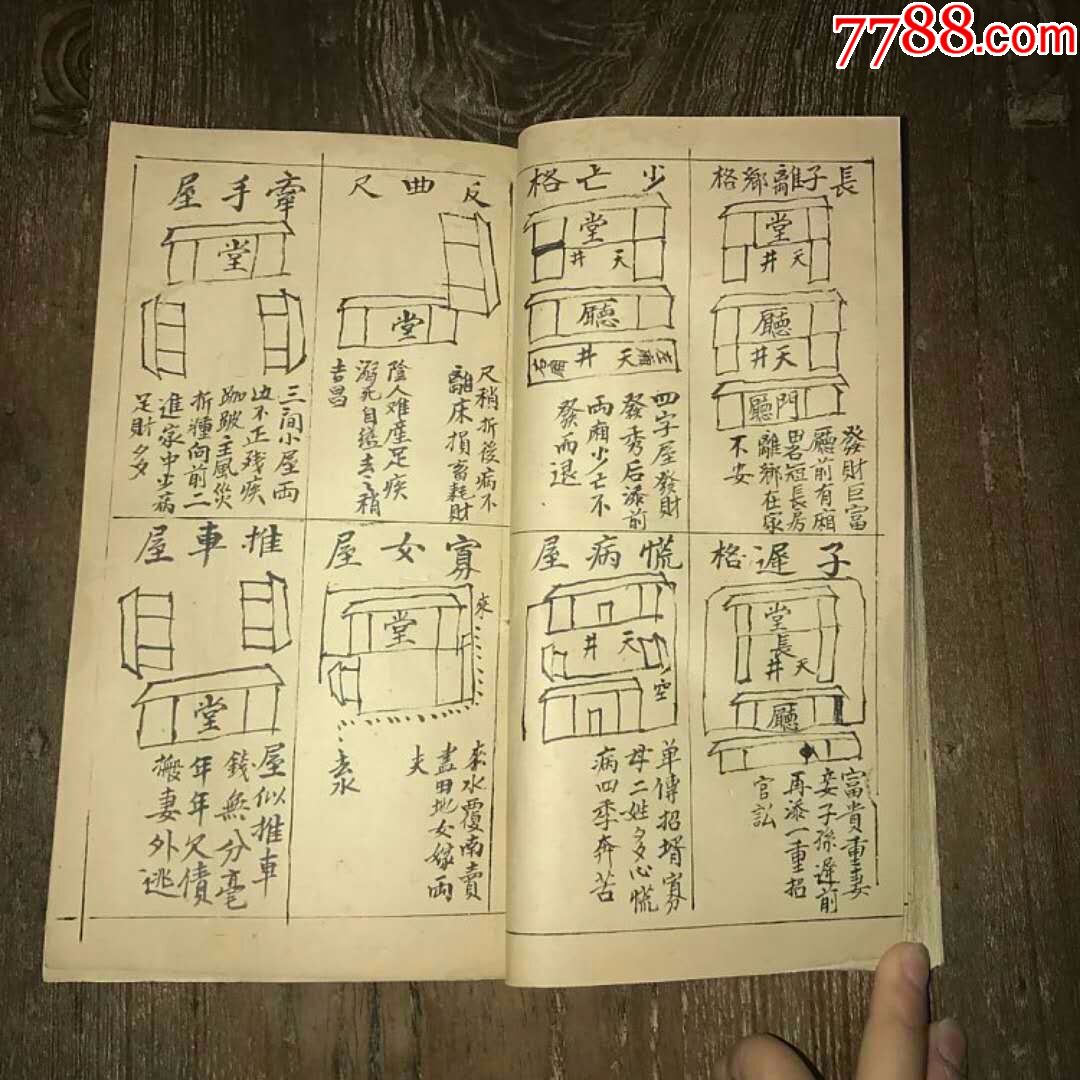 7788.com
長子離鄉格
堂
天井
廳
天井
門廳
發財巨富
廳前有廂
畧短長房
離鄉在家
不安
少亡格
堂
天井
廳
天井
四字屋發財
發秀后添前
兩廂少亡不
發而退
子遲格
堂
長
天井
廳
富貴重妻
妾子孫遲前
再添一重招
官訟
慌病屋
天井
空
单傳招壻寡
母二姓多心慌
病四季奔苦
反曲尺
堂
尺稍折後病不
離床損畜耗財
陰人难産足疾
溺死自縊去之稍
吉昌
牽手屋
堂
三間小屋兩
边不正残疾
跏跛主風災
折瘇向前二
進家中少病
足財多
寡女屋
堂
來
去水
來水覆南賣
盡田地女嫁兩
夫
推車屋
堂
屋似推車
錢無分毫
年年欠債
搬妻外逃